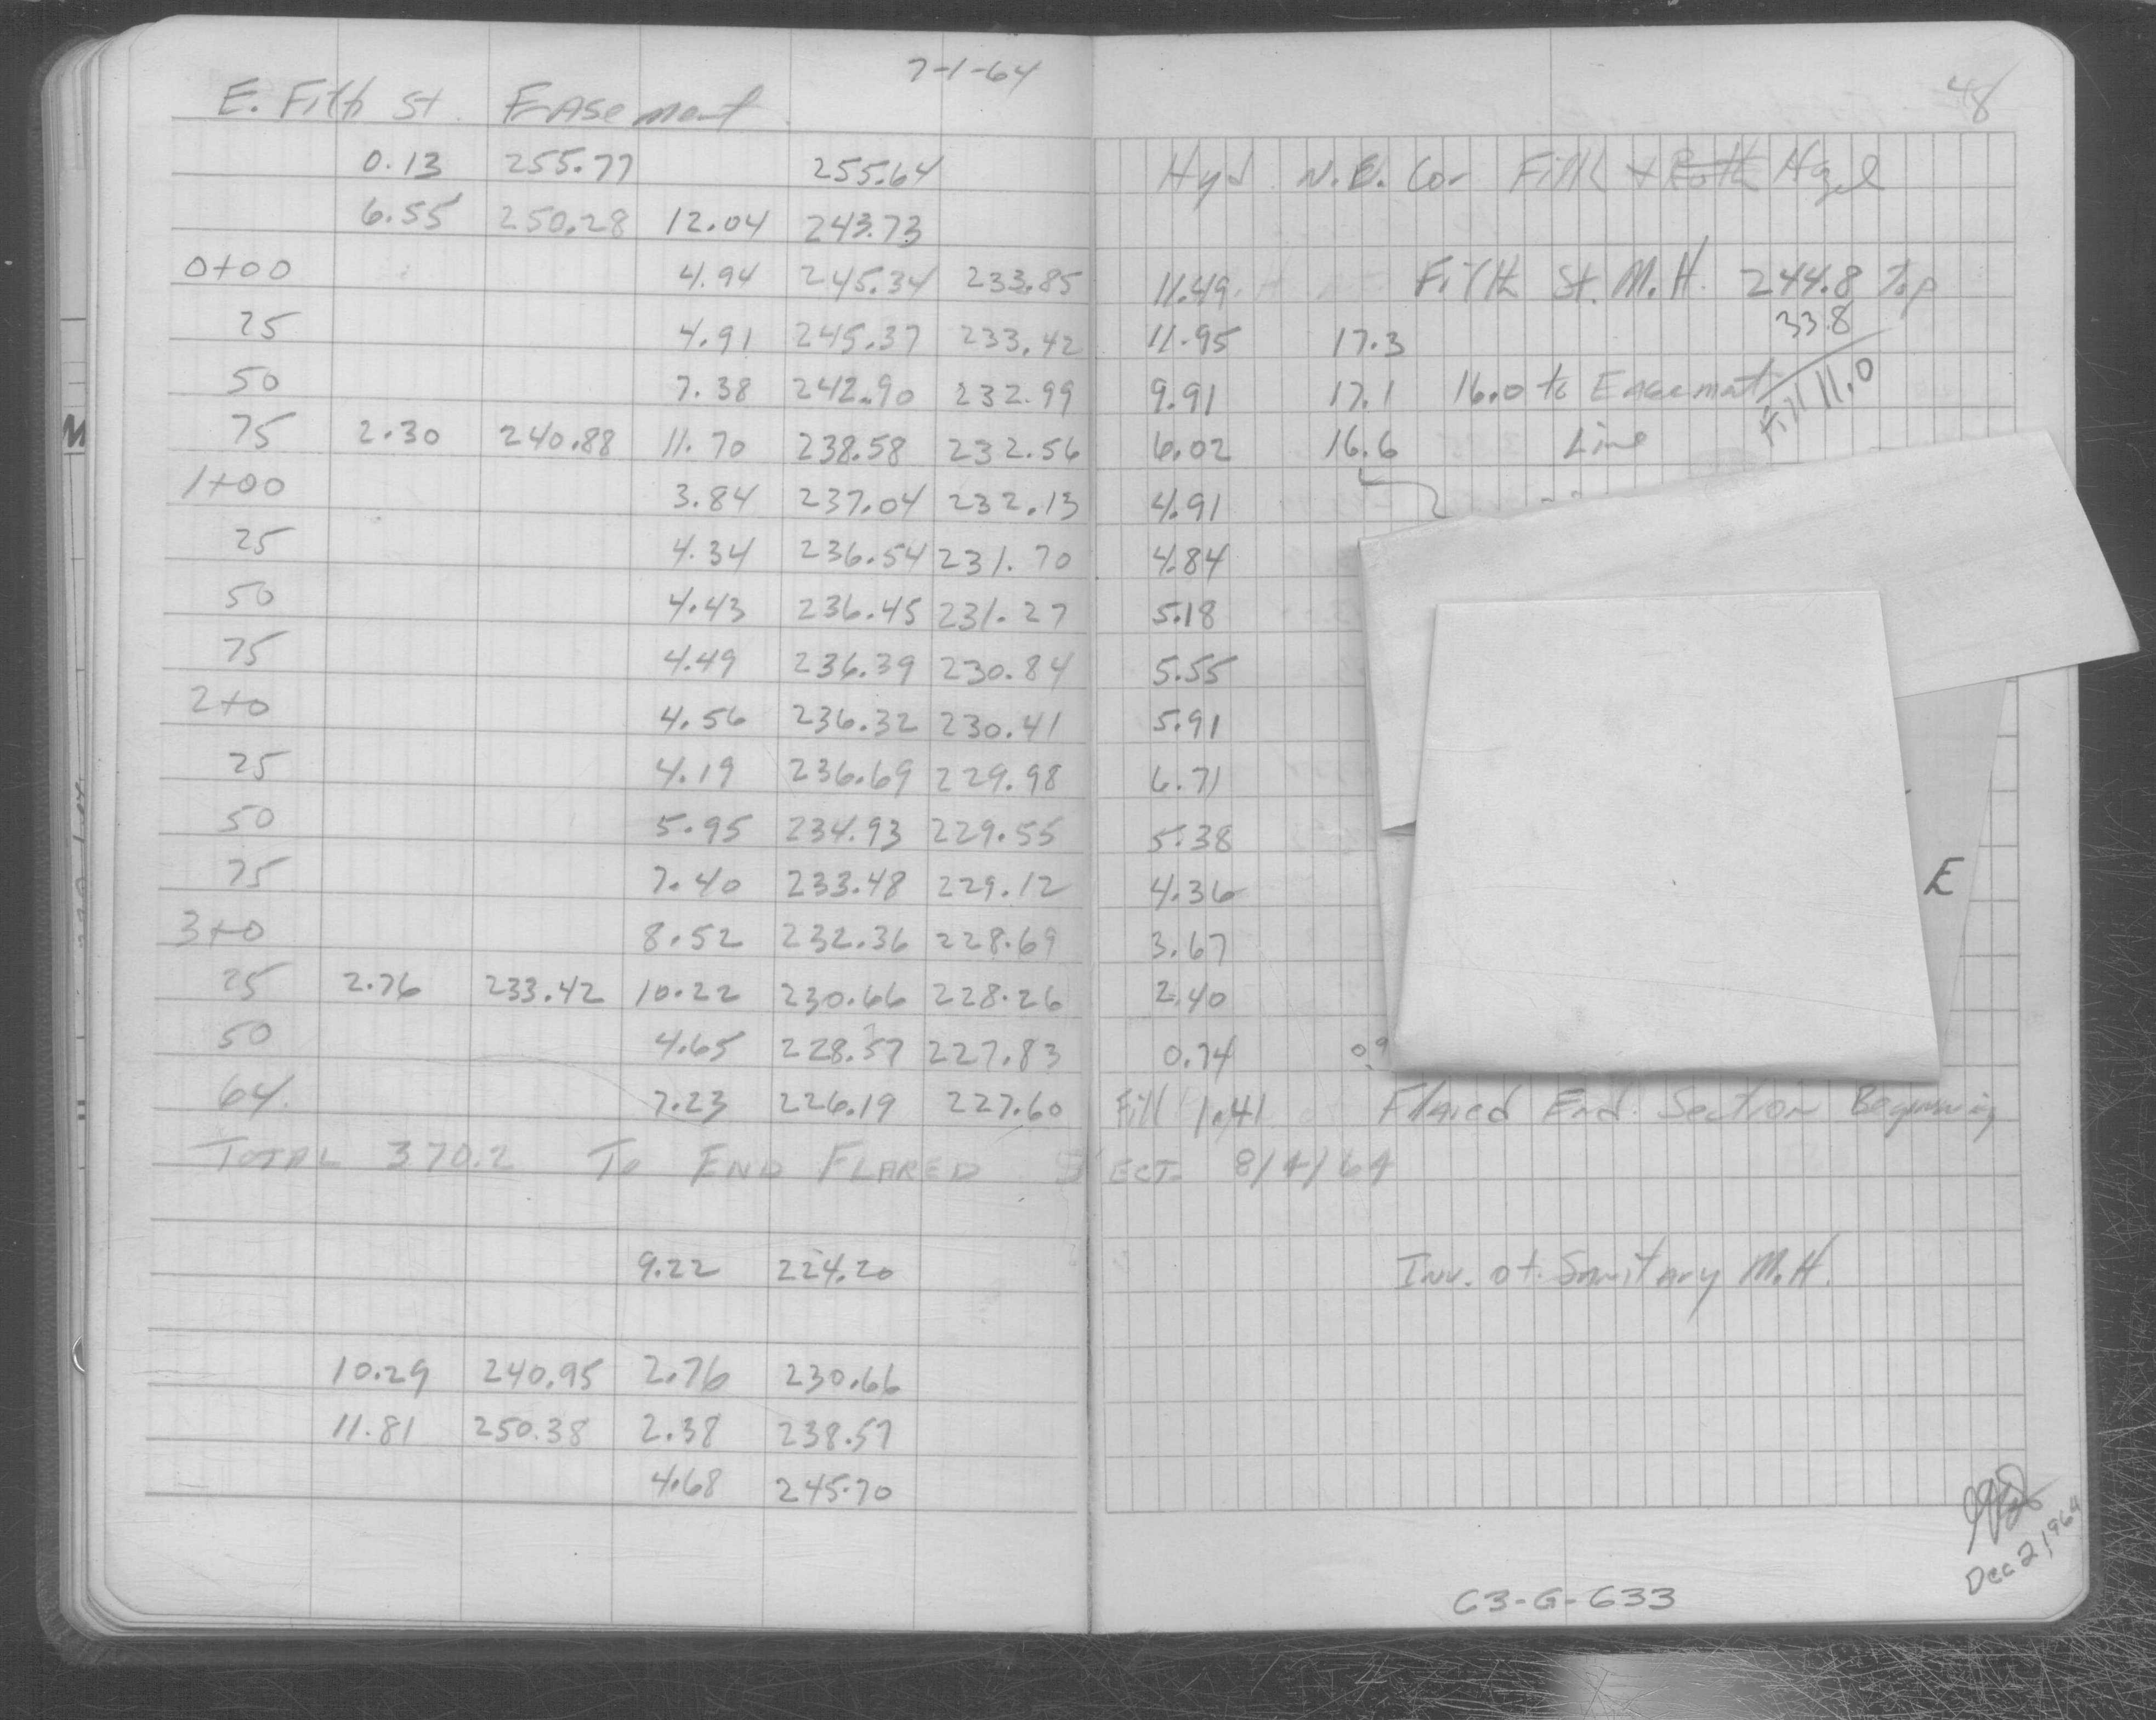 7-1-64
48
E. Fifth St. Easement
0.13 255.77 255.64 Hyd N.E. Cor Fifth + Hazel
6.55 250.28 12.04 243.73
0+00 4.94 245.34 233.85 11.49 Fifth St. M.H. 244.8 Top
33.8
25 4.91 245.37 233.42 11.95 17.3
50 7.38 242.90 232.99 9.91 17.1 16.0 to Easement
Fill 11.0
75 2.30 240.88 11.70 238.58 232.56 6.02 16.6 Line
1+00 3.84 237.04 232.13 4.91
25 4.34 236.54 231.70 4.84
50 4.43 236.45 231.27 5.18
75 4.49 236.39 230.84 5.55
2+0 4.56 236.32 230.41 5.91
25 4.19 236.69 229.98 6.71
50 5.95 234.93 229.55 5.38
75 7.40 233.48 229.12 4.36
E
3+0 8.52 232.36 228.69 3.67
25 2.76 233.42 10.22 230.66 228.26 2.40
50 4.65 228.57 227.83 0.74
64. 7.23 226.19 227.60 Fill 1.41 Flared End Section Beginning
TOTAL 370.2 To END FLARED SECT. 8/4/64
9.22 224.20 Inv. of Sanitary M.H.
10.29 240.95 2.76 230.66
11.81 250.38 2.38 238.57
4.68 245.70
Dec 2, 1964
C3-G-633